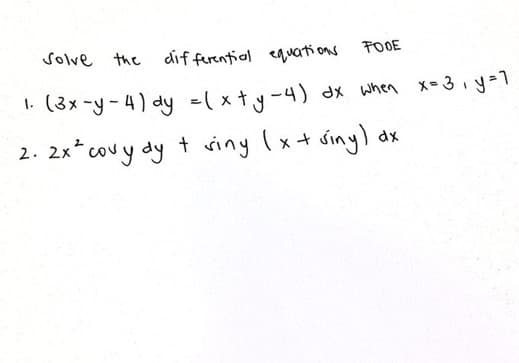 Solve the differential equations FODE
1. (3x-y-4) dy =(x+y-4) dx when x=3, y=7
2. 2x² cosy dy + siny (x+siny) dx